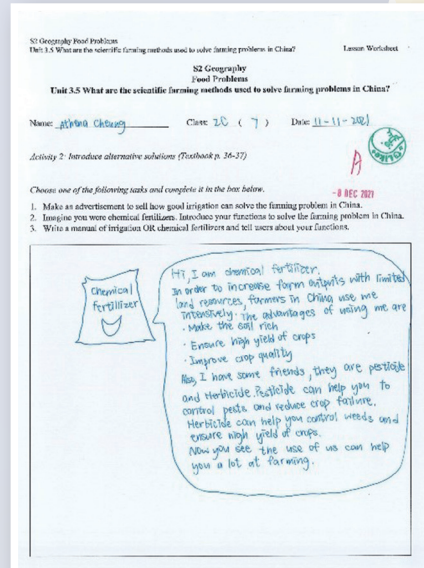 S2 Geography Food Problems
Unit 3.5 What are the scientific farming methods used to solve farming problems in China?
Lesson Worksheet
S2 Geography
Food Problems
Unit 3.5 What are the scientific farming methods used to solve farming problems in China?
Name: Athena Cheung Class: 2C ( 7 ) Date: 11-11-2021
Activity 2: Introduce alternative solutions (Textbook p. 36-37)
A
-8 DEC 2021
Choose one of the following tasks and complete it in the box below.
1. Make an advertisement to sell how good irrigation can solve the farming problem in China.
2. Imagine you were chemical fertilizers. Introduce your functions to solve the farming problem in China.
3. Write a manual of irrigation OR chemical fertilizers and tell users about your functions.
Chemical
fertilizer
Hi, I am chemical fertilizer.
In order to increase farm outputs with limited
land resources, farmers in China use me
intensively. The advantages of using me are
· Make the soil rich
· Ensure high yield of crops
· Improve crop quality
Also, I have some friends, they are pesticide
and Herbicide. Pesticide can help you to
control pests and reduce crop failure.
Herbicide can help you control weeds and
ensure high yield of crops.
Now you see the use of us can help
you a lot at farming.